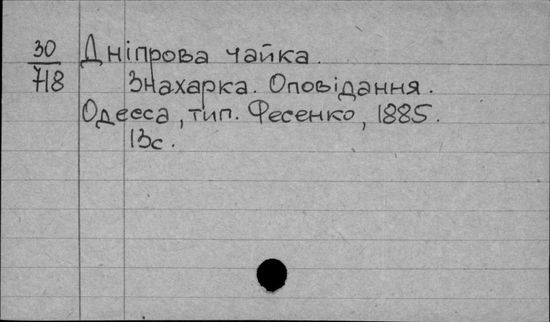 30
718
Дніпрова чайка.
Знахарка. Оповідання.
Одесса, тип. Фесенко, 1885.
13с.